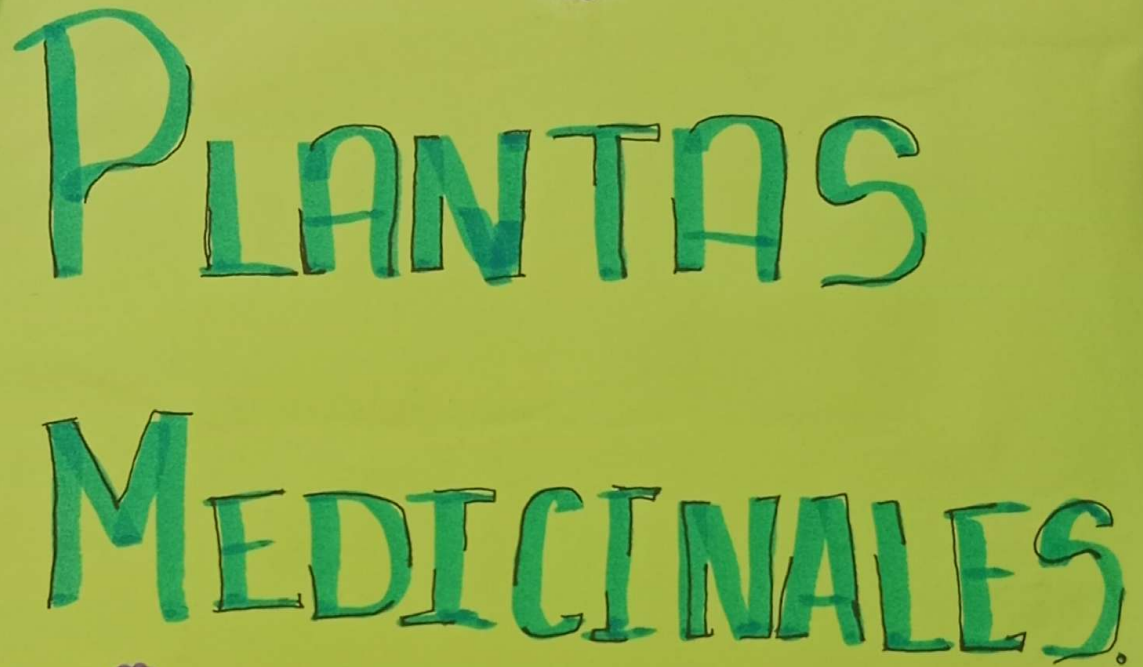 PLANTAS
MEDICINALES.